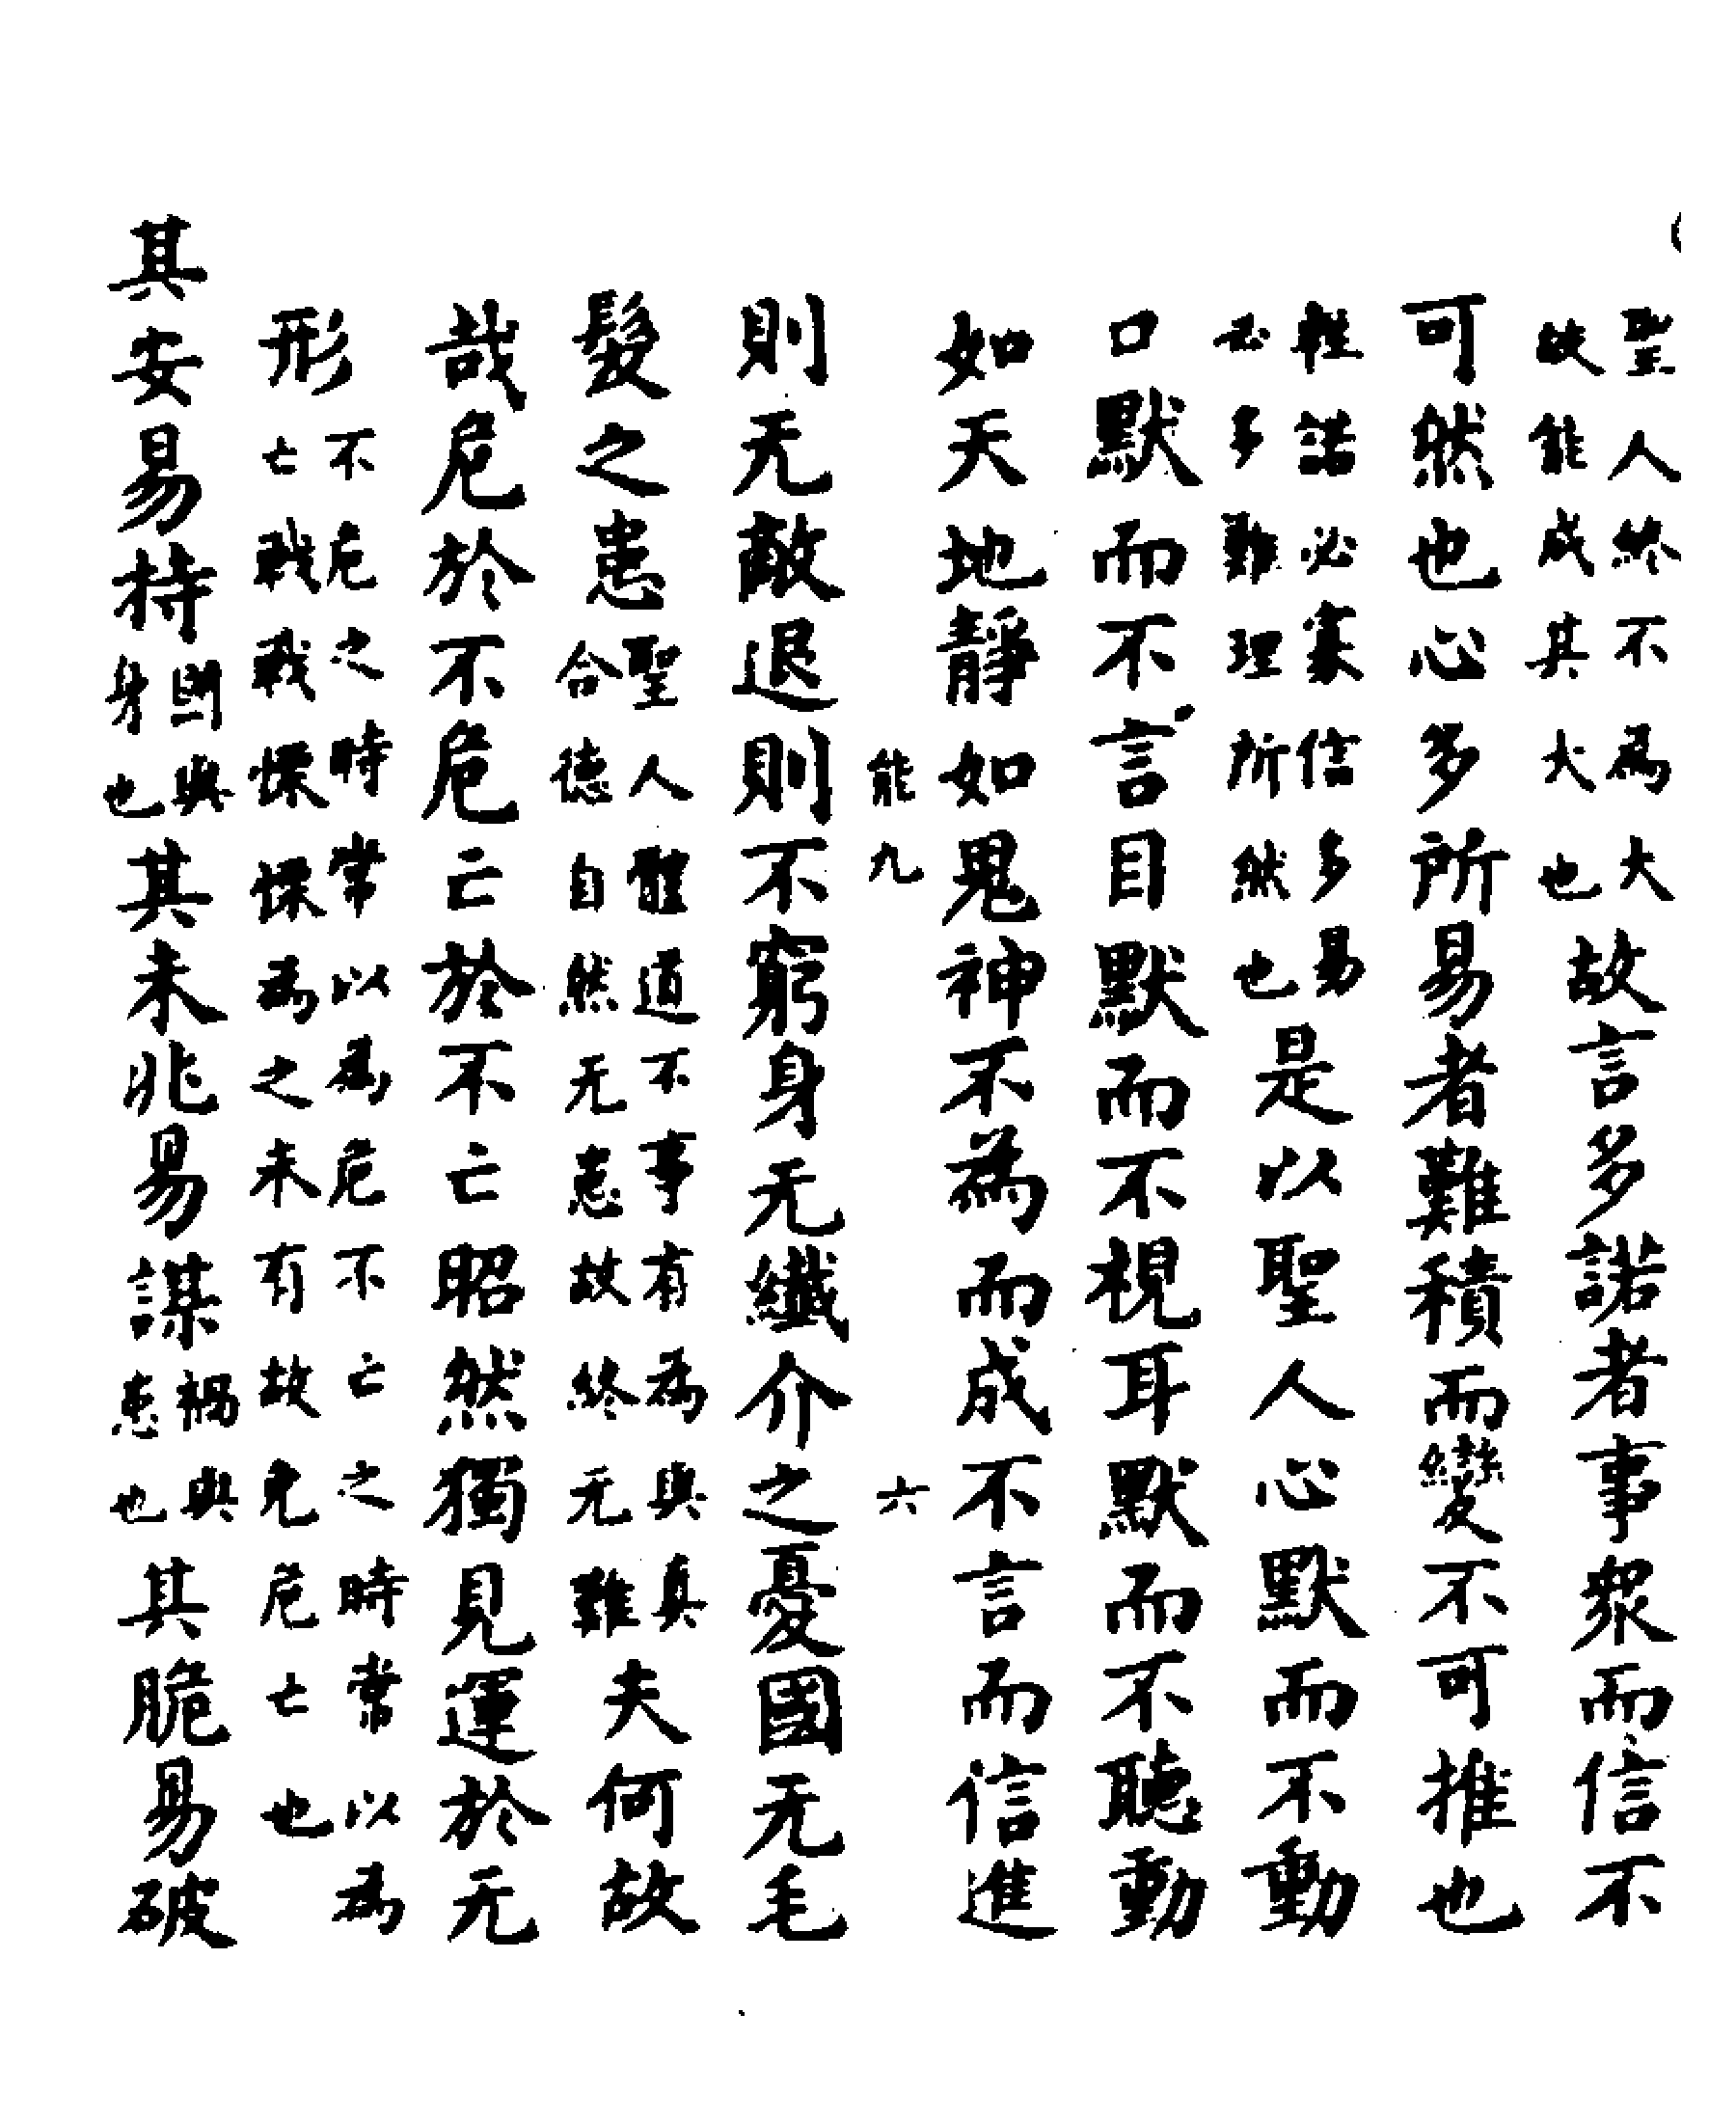 聖人終不爲大故能成其大也故言多諾者事衆而信不
可然也心多所易者難積而變不可推也
輕諾必寡信多易必多難理所然也是以聖人心默而不動
口默而不言目默而不視耳默而不聽動
如天地靜如鬼神不為而成不言而信進
能九 六
則无敵退則不窮身无纖介之憂國无毛
髮之患聖人體道不事有為與真合德自然无患故終无難夫何故
哉危於不危亡於不亡昭然獨見運於无
形不危之時常以為危不亡之時常以為亡戰戰慄慄為之未有故免危亡也
其安易持國與身也其未兆易謀禍與患也其脆易破